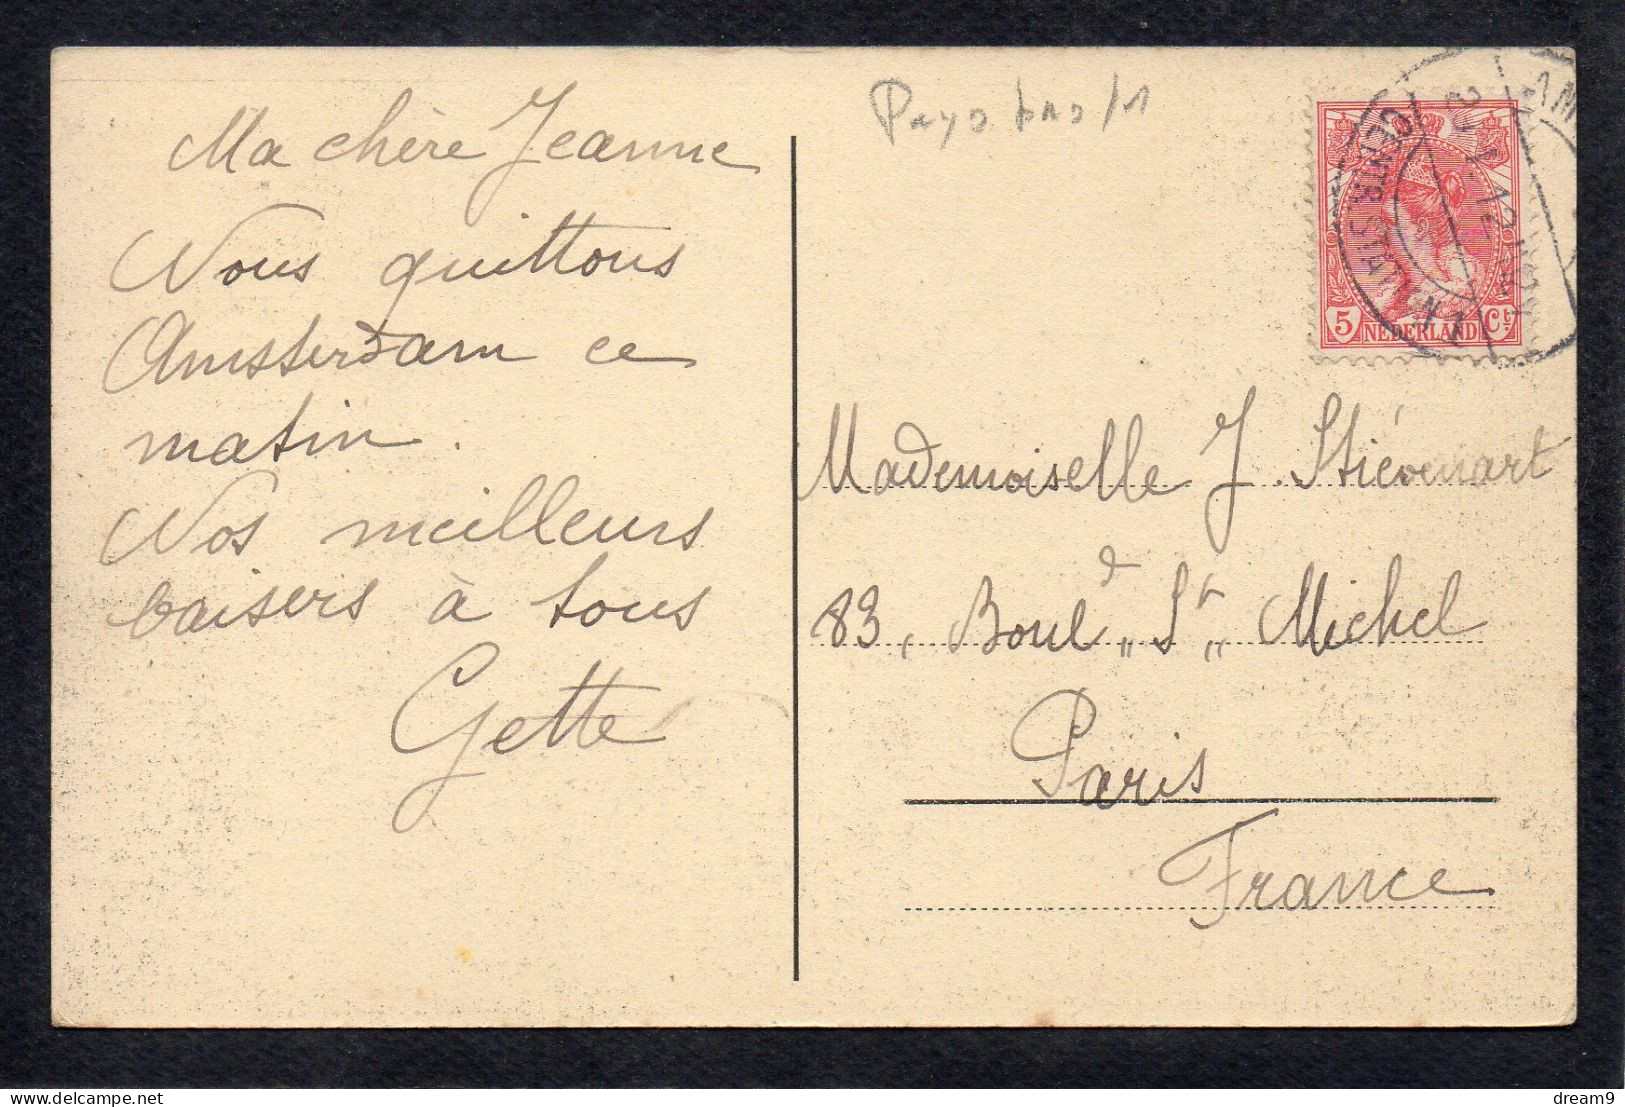 Ma chère Jeanne
Nous quittons
Amsterdam ce
matin.
Nos meilleurs
baisers à tous
Gette
Pays bas/1
5 NEDERLAND Ct
AM
CENTR. STAT
Mademoiselle J. Stiévenart
83, Boul.d St. Michel
Paris
France
www.delcampe.net
dream9